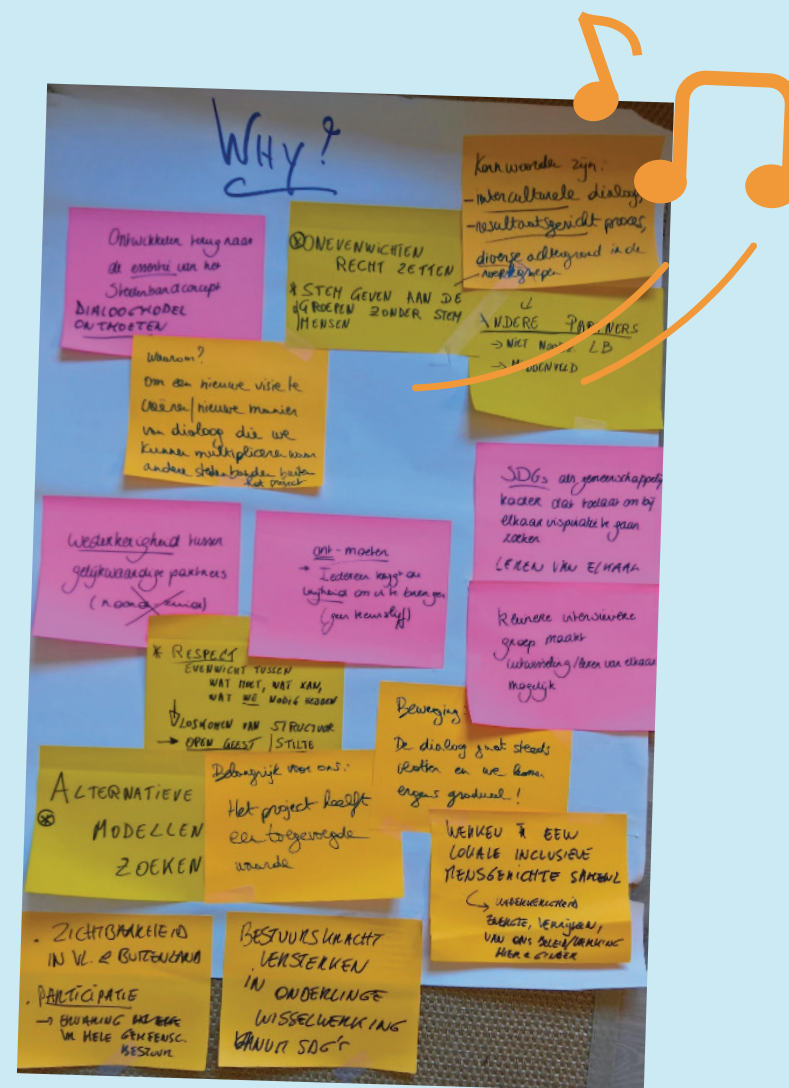 WHY?
Kernwoorden zijn:
- interculturele dialoog,
- resultaatsgericht proces,
diverse achtergrond in de
werkgroepen
Ontwikkelen terug naar
de essentie van het
Stedenbandconcept
DIALOOGMODEL
ONTMOETEN
ONEVENWICHTEN
RECHT ZETTEN
* STEM GEVEN AAN DE
GROEPEN ZONDER STEM
MENSEN
ANDERE PARTNERS
→ NIET LB
→ MIDDENVELD
Waarom?
Om een nieuwe visie te
creëren/nieuwe manier
van dialoog die we
kunnen multipliceren naar
andere stedenbanden buiten
het project
SDGs als gemeenschappelijk
kader dat toelaat om bij
elkaar inspiratie te gaan
zoeken
LEREN VAN ELKAAR
Wederkerigheid tussen
gelijkwaardige partners
(noord zuid)
ont-moeten
→ Iedereen krijgt de
vrijheid om in te brengen
(geen keurslijf)
kleinere intensievere
groep maakt
uitwisseling/leren van elkaar
mogelijk
* RESPECT
EVENWICHT TUSSEN
WAT MOET, WAT KAN,
WAT WE NODIG HEBBEN
LOSKOMEN VAN STRUCTUUR
→ OPEN GEEST / STILTE
Beweging:
De dialoog gaat steeds
vlotter en we komen
ergens gradueel!
ALTERNATIEVE
MODELLEN
ZOEKEN
Belangrijk voor ons:
Het project heeft
een toegevoegde
waarde
WERKEN EEN
LOKALE INCLUSIEVE
MENSGERICHTE SAMENL
WEDERKERIGHEID
ENERGIE, VERRIJKEN,
VAN ONS BELEID/WERKING
HIER & GINDER
. ZICHTBAARHEID
IN VL. & BUITENLAND
. PARTICIPATIE
→ ERVARING
IN HELE GEMEENSC.
BESTUUR
BESTUURSKRACHT
VERSTERKEN
IN ONDERLINGE
WISSELWERKING
VANUIT SDG'S